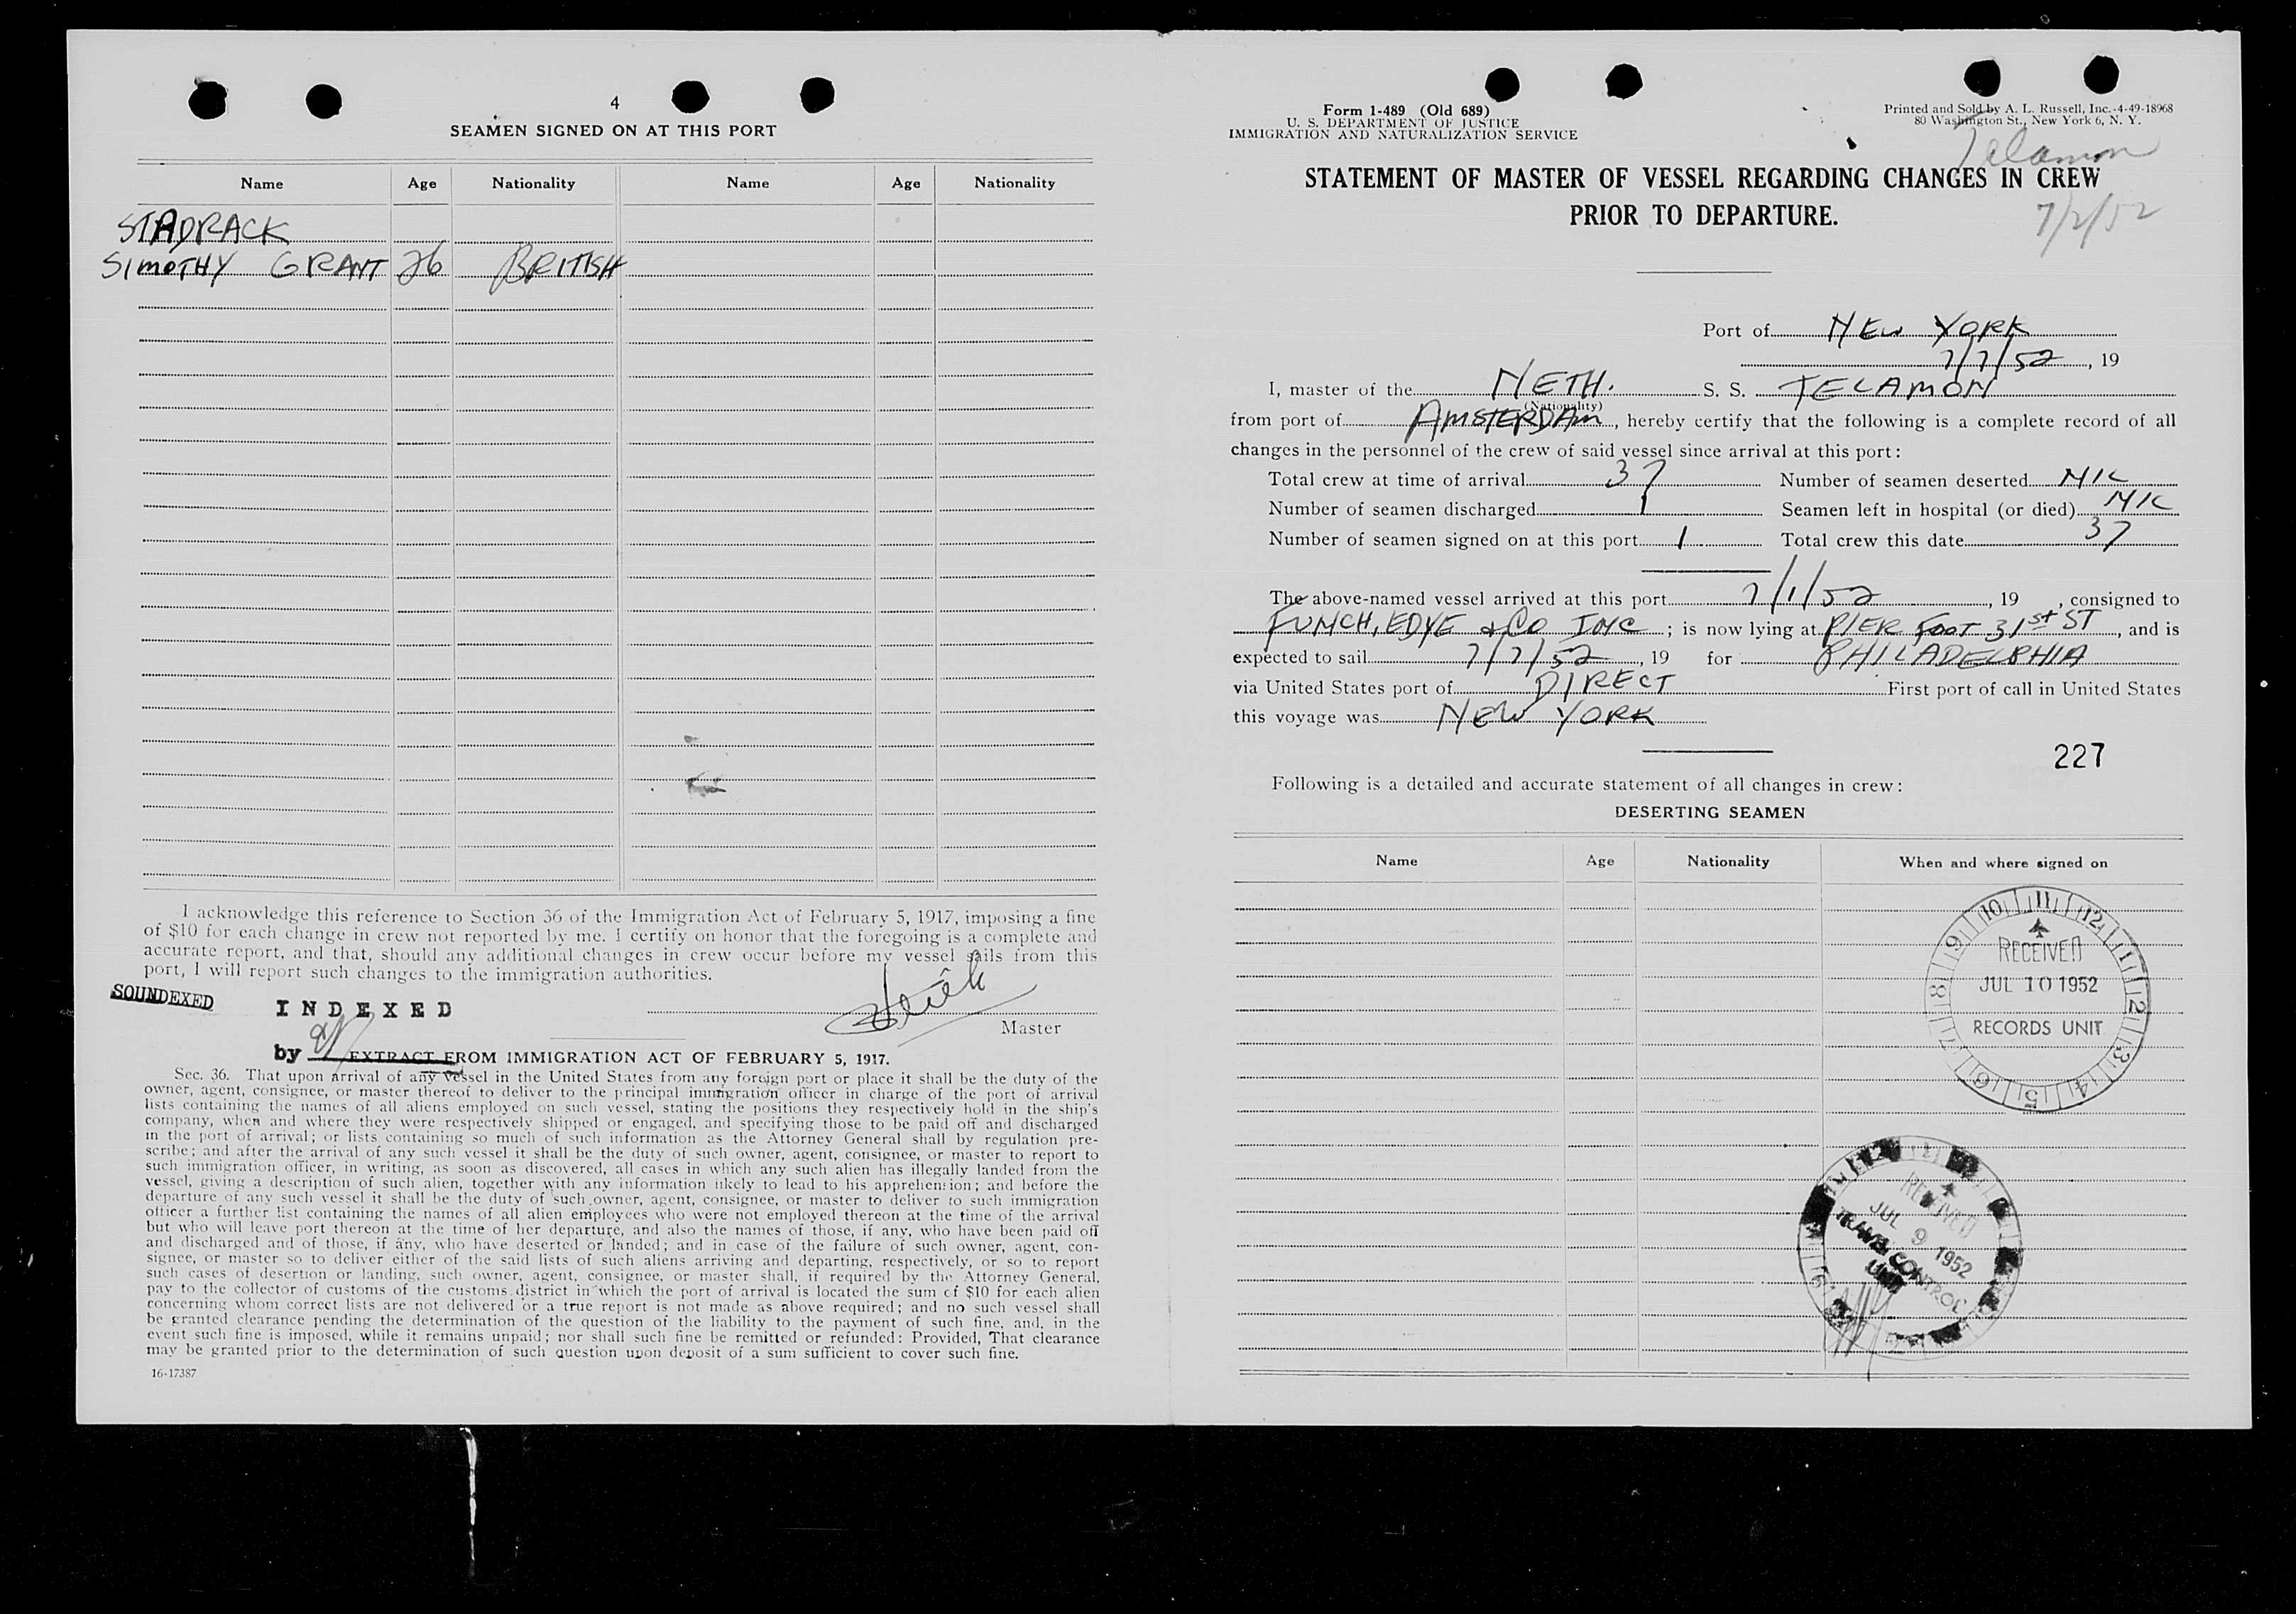 4
SEAMEN SIGNED ON AT THIS PORT
Name Age Nationality Name Age Nationality
STADRACK
SIMOTHY GRANT 26 BRITISH
I acknowledge this reference to Section 36 of the Immigration Act of February 5, 1917, imposing a fine
of $10 for each change in crew not reported by me. I certify on honor that the foregoing is a complete and
accurate report, and that, should any additional changes in crew occur before my vessel sails from this
port, I will report such changes to the immigration authorities.
SOUNDEXED
INDEXED
Master
by EXTRACT FROM IMMIGRATION ACT OF FEBRUARY 5, 1917.
Sec. 36. That upon arrival of any vessel in the United States from any foreign port or place it shall be the duty of the
owner, agent, consignee, or master thereof to deliver to the principal immigration officer in charge of the port of arrival
lists containing the names of all aliens employed on such vessel, stating the positions they respectively hold in the ship's
company, when and where they were respectively shipped or engaged, and specifying those to be paid off and discharged
in the port of arrival; or lists containing so much of such information as the Attorney General shall by regulation pre-
scribe; and after the arrival of any such vessel it shall be the duty of such owner, agent, consignee, or master to report to
such immigration officer, in writing, as soon as discovered, all cases in which any such alien has illegally landed from the
vessel, giving a description of such alien, together with any information likely to lead to his apprehension; and before the
departure of any such vessel it shall be the duty of such owner, agent, consignee, or master to deliver to such immigration
officer a further list containing the names of all alien employees who were not employed thereon at the time of the arrival
but who will leave port thereon at the time of her departure, and also the names of those, if any, who have been paid off
and discharged and of those, if any, who have deserted or landed; and in case of the failure of such owner, agent, con-
signee, or master so to deliver either of the said lists of such aliens arriving and departing, respectively, or so to report
such cases of desertion or landing, such owner, agent, consignee, or master shall, if required by the Attorney General,
pay to the collector of customs of the customs district in which the port of arrival is located the sum of $10 for each alien
concerning whom correct lists are not delivered or a true report is not made as above required; and no such vessel shall
be granted clearance pending the determination of the question of the liability to the payment of such fine, and, in the
event such fine is imposed, while it remains unpaid; nor shall such fine be remitted or refunded: Provided, That clearance
may be granted prior to the determination of such question upon deposit of a sum sufficient to cover such fine.
16-17387
Form 1-489 (Old 689)
U. S. DEPARTMENT OF JUSTICE
IMMIGRATION AND NATURALIZATION SERVICE
Printed and Sold by A. L. Russell, Inc.-4-49-18968
80 Washington St., New York 6, N. Y.
Telamon
STATEMENT OF MASTER OF VESSEL REGARDING CHANGES IN CREW
PRIOR TO DEPARTURE.
7/2/52
Port of NEW YORK
7/7/52, 19
I, master of the NETH. S. S. TELAMON
(Nationality)
from port of AMSTERDAM, hereby certify that the following is a complete record of all
changes in the personnel of the crew of said vessel since arrival at this port:
Total crew at time of arrival 37 Number of seamen deserted NIL
Number of seamen discharged 1 Seamen left in hospital (or died) NIL
Number of seamen signed on at this port 1 Total crew this date 37
The above-named vessel arrived at this port 7/1/52, 19 , consigned to
FUNCH, EDYE & Co INC; is now lying at PIER FOOT 31st ST, and is
expected to sail 7/7/52, 19 for PHILADELPHIA
via United States port of DIRECT First port of call in United States
this voyage was NEW YORK
227
Following is a detailed and accurate statement of all changes in crew:
DESERTING SEAMEN
Name Age Nationality When and where signed on
10 11 12 1 2 3 4 5 6 7 8 9
RECEIVED
JUL 10 1952
RECORDS UNIT
RECEIVED
JUL 9 1952
TRAVEL CONTROL
UNIT